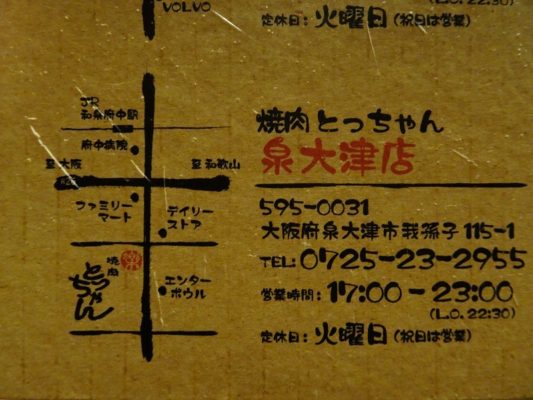 VOLVO
(L.O. 22:30)
定休日：火曜日（祝日は営業）
JR
和泉府中駅
府中病院
至大阪
至和歌山
ファミリー
マート
デイリー
ストア
焼肉
とっちゃん
エンター
ボウル
焼肉とっちゃん
泉大津店
595-0031
大阪府泉大津市我孫子115-1
TEL: 0725-23-2955
営業時間：17:00-23:00
(L.O. 22:30)
定休日：火曜日（祝日は営業）